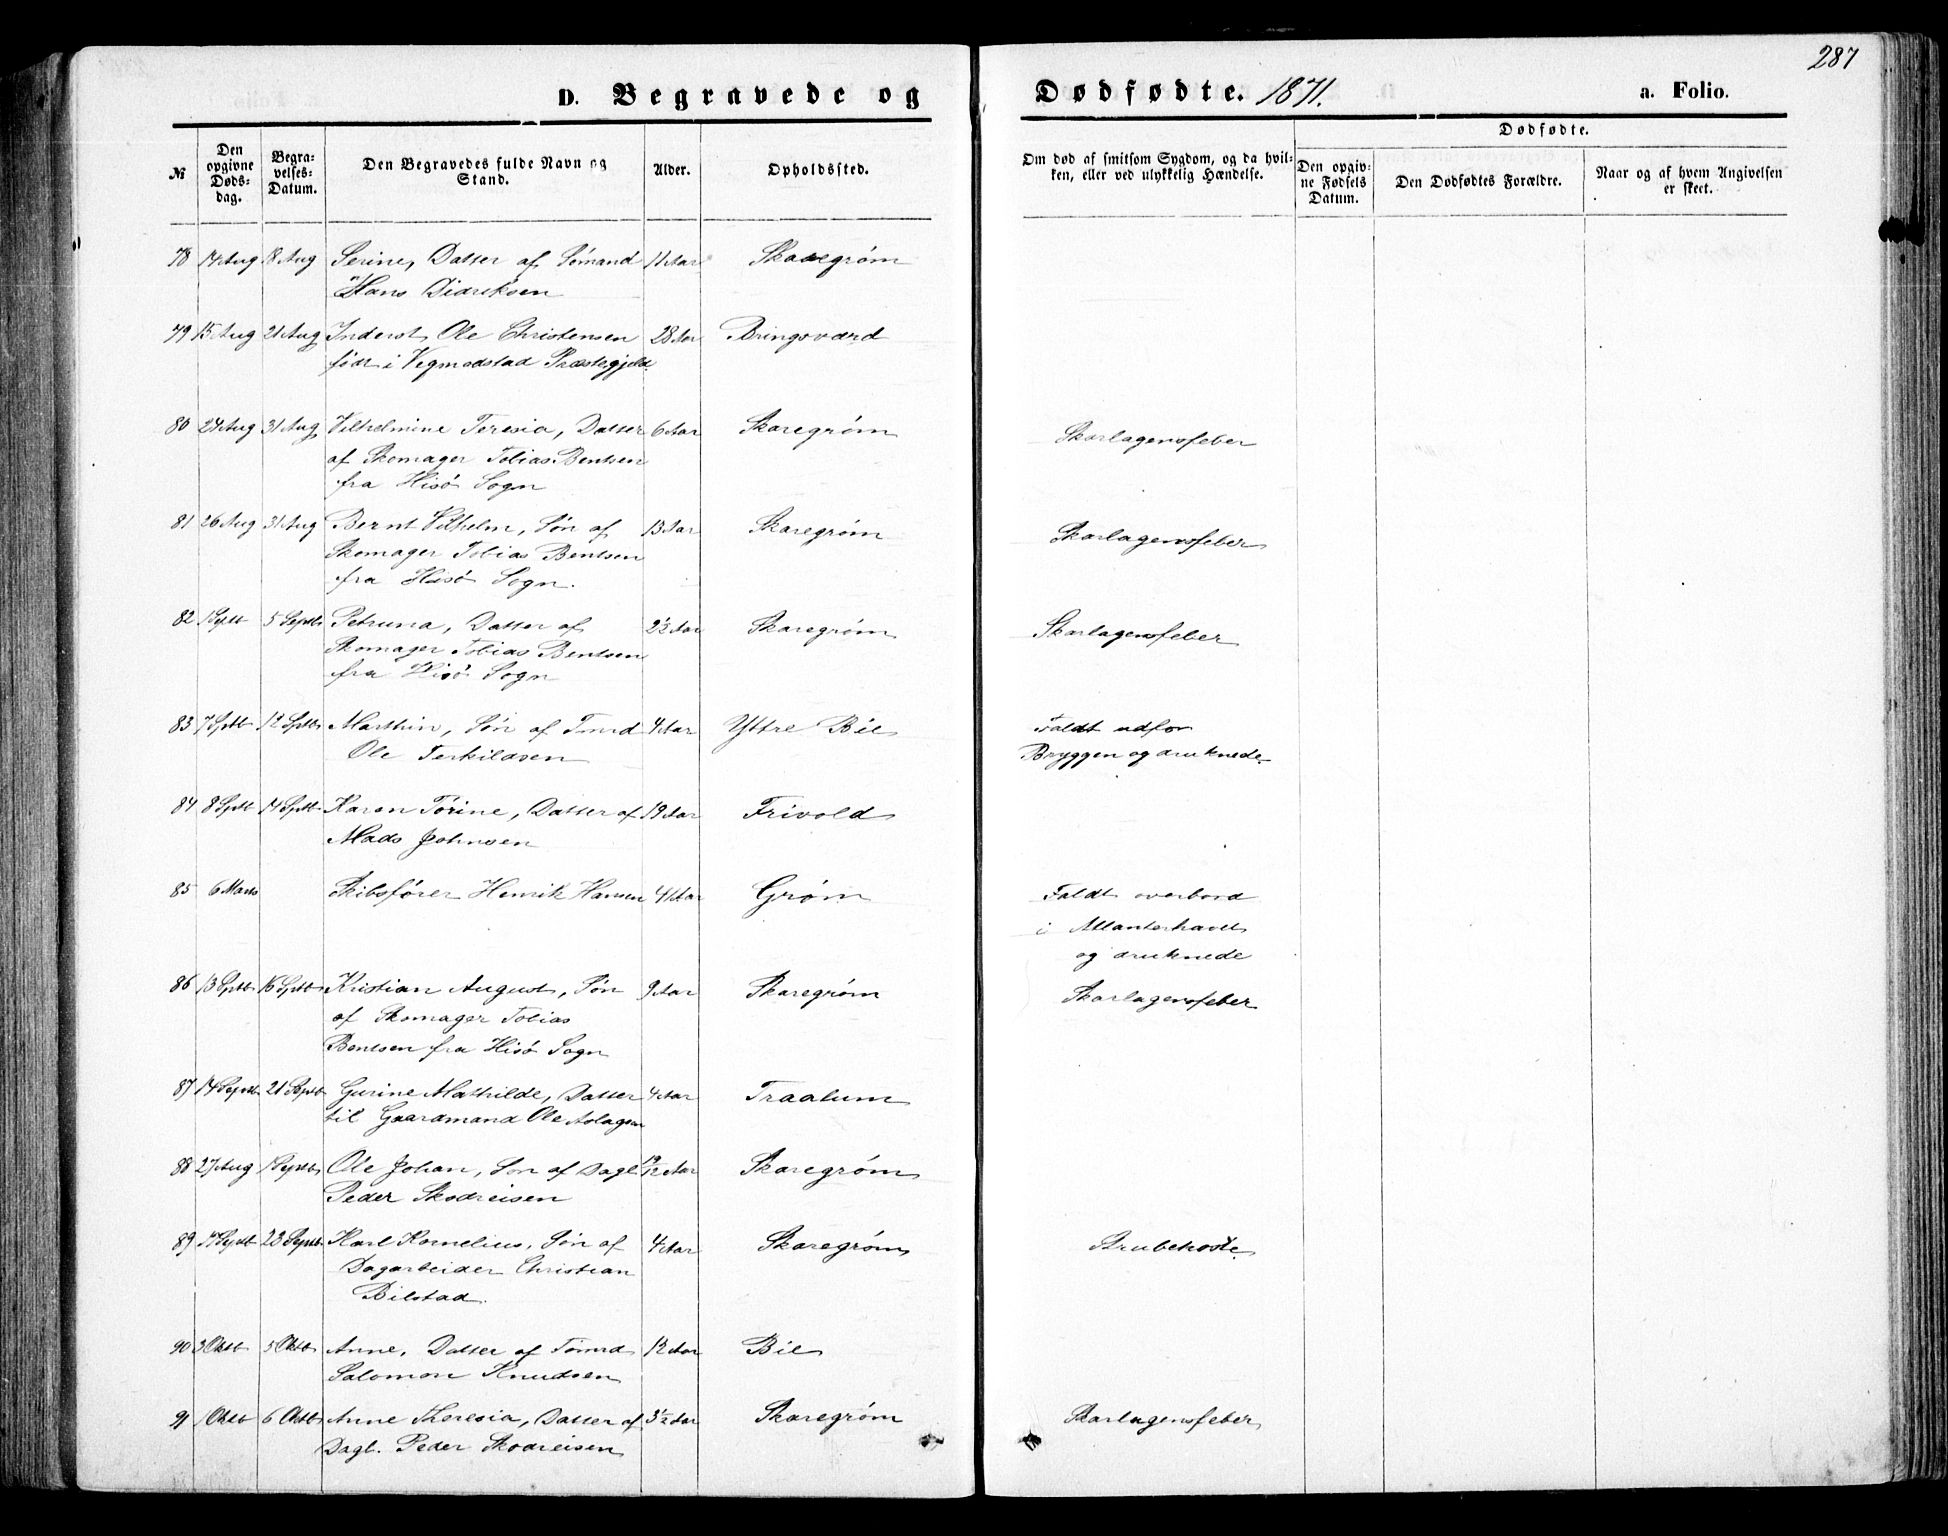 287
D. Begravede og Dødfødte. 1871. a. Folio.
№
Den opgivne Døds-dag.
Begra-velses-Datum.
Den Begravedes fulde Navn og Stand.
Alder.
Opholdssted.
Om død af smitsom Sygdom, og da hvil-ken, eller ved ulykkelig Hændelse.
Dødfødte.
Den opgiv-ne Fødsels Datum.
Den Dødfødtes Forældre.
Naar og af hvem Angivelsen er skeet.
78 14 Aug 18 Aug Serine, Datter af Sømand 11 Aar Skaregrøm
Hans Didriksen
79 15 Aug 21 Aug Inderst Ole Christensen 28 Aar Bringsværd
født i Vegmodstad Præstegjeld.
80 24 Aug 31 Aug Vilhelmine Teresia, Datter 6 Aar Skaregrøm Skarlagensfeber
af Skomager Tobias Bentsen
fra Hisö Sogn
81 26 Aug 31 Aug Bernt Vilhelm, Søn af 13 Aar Skaregrøm Skarlagensfeber
Skomager Tobias Bentsen
fra Hisö Sogn.
82 1 Septb 5 Septb Petruna, Datter af 2½ Aar Skaregrøm Skarlagensfeber
Skomager Tobias Bentsen
fra Hisö Sogn
83 7 Sptb 12 Sptb Marthin, Søn af Tmrd 4 Aar Yttre Bie Faldt udfor
Ole Terkildsen Bryggen og druknede.
84 8 Sptb 14 Sptb Karen Tørine, Datter af 19 Aar Frivold
Mads Johnsen
85 6 Marts Skibsfører Henrik Hansen 41 Aar Grøm Faldt overbord
i Atlanterhavet
og druknede
86 13 Sptb 16 Sptb Kristian August, Søn 9 Aar Skaregrøm Skarlagensfeber
af Skomager Tobias
Bentsen fra Hisö Sogn
87 14 Septb 21 Septb Gurine Mathilde, Datter 4 Aar Traalum
til Gaardmand Ole Aslagsen
88 27 Aug 1 Septb Ole Johan, Søn af Dagl. 19/12 Aar Skaregrøm
Peder Skodreisen
89 17 Septb 23 Septb Karl Kornelius, Søn af 4 Aar Skaregrøm Strubehoste
Dagarbeider Christian
Bilstad.
90 3 Oktb 5 Oktb Anne, Datter af Tømrd 12 Aar Bie
Salomon Knudsen
91 1 Oktb 6 Oktb Anne Theresia, Datter af 3½ Aar Skaregrøm Skarlagensfeber
Dagl. Peder Skodreisen